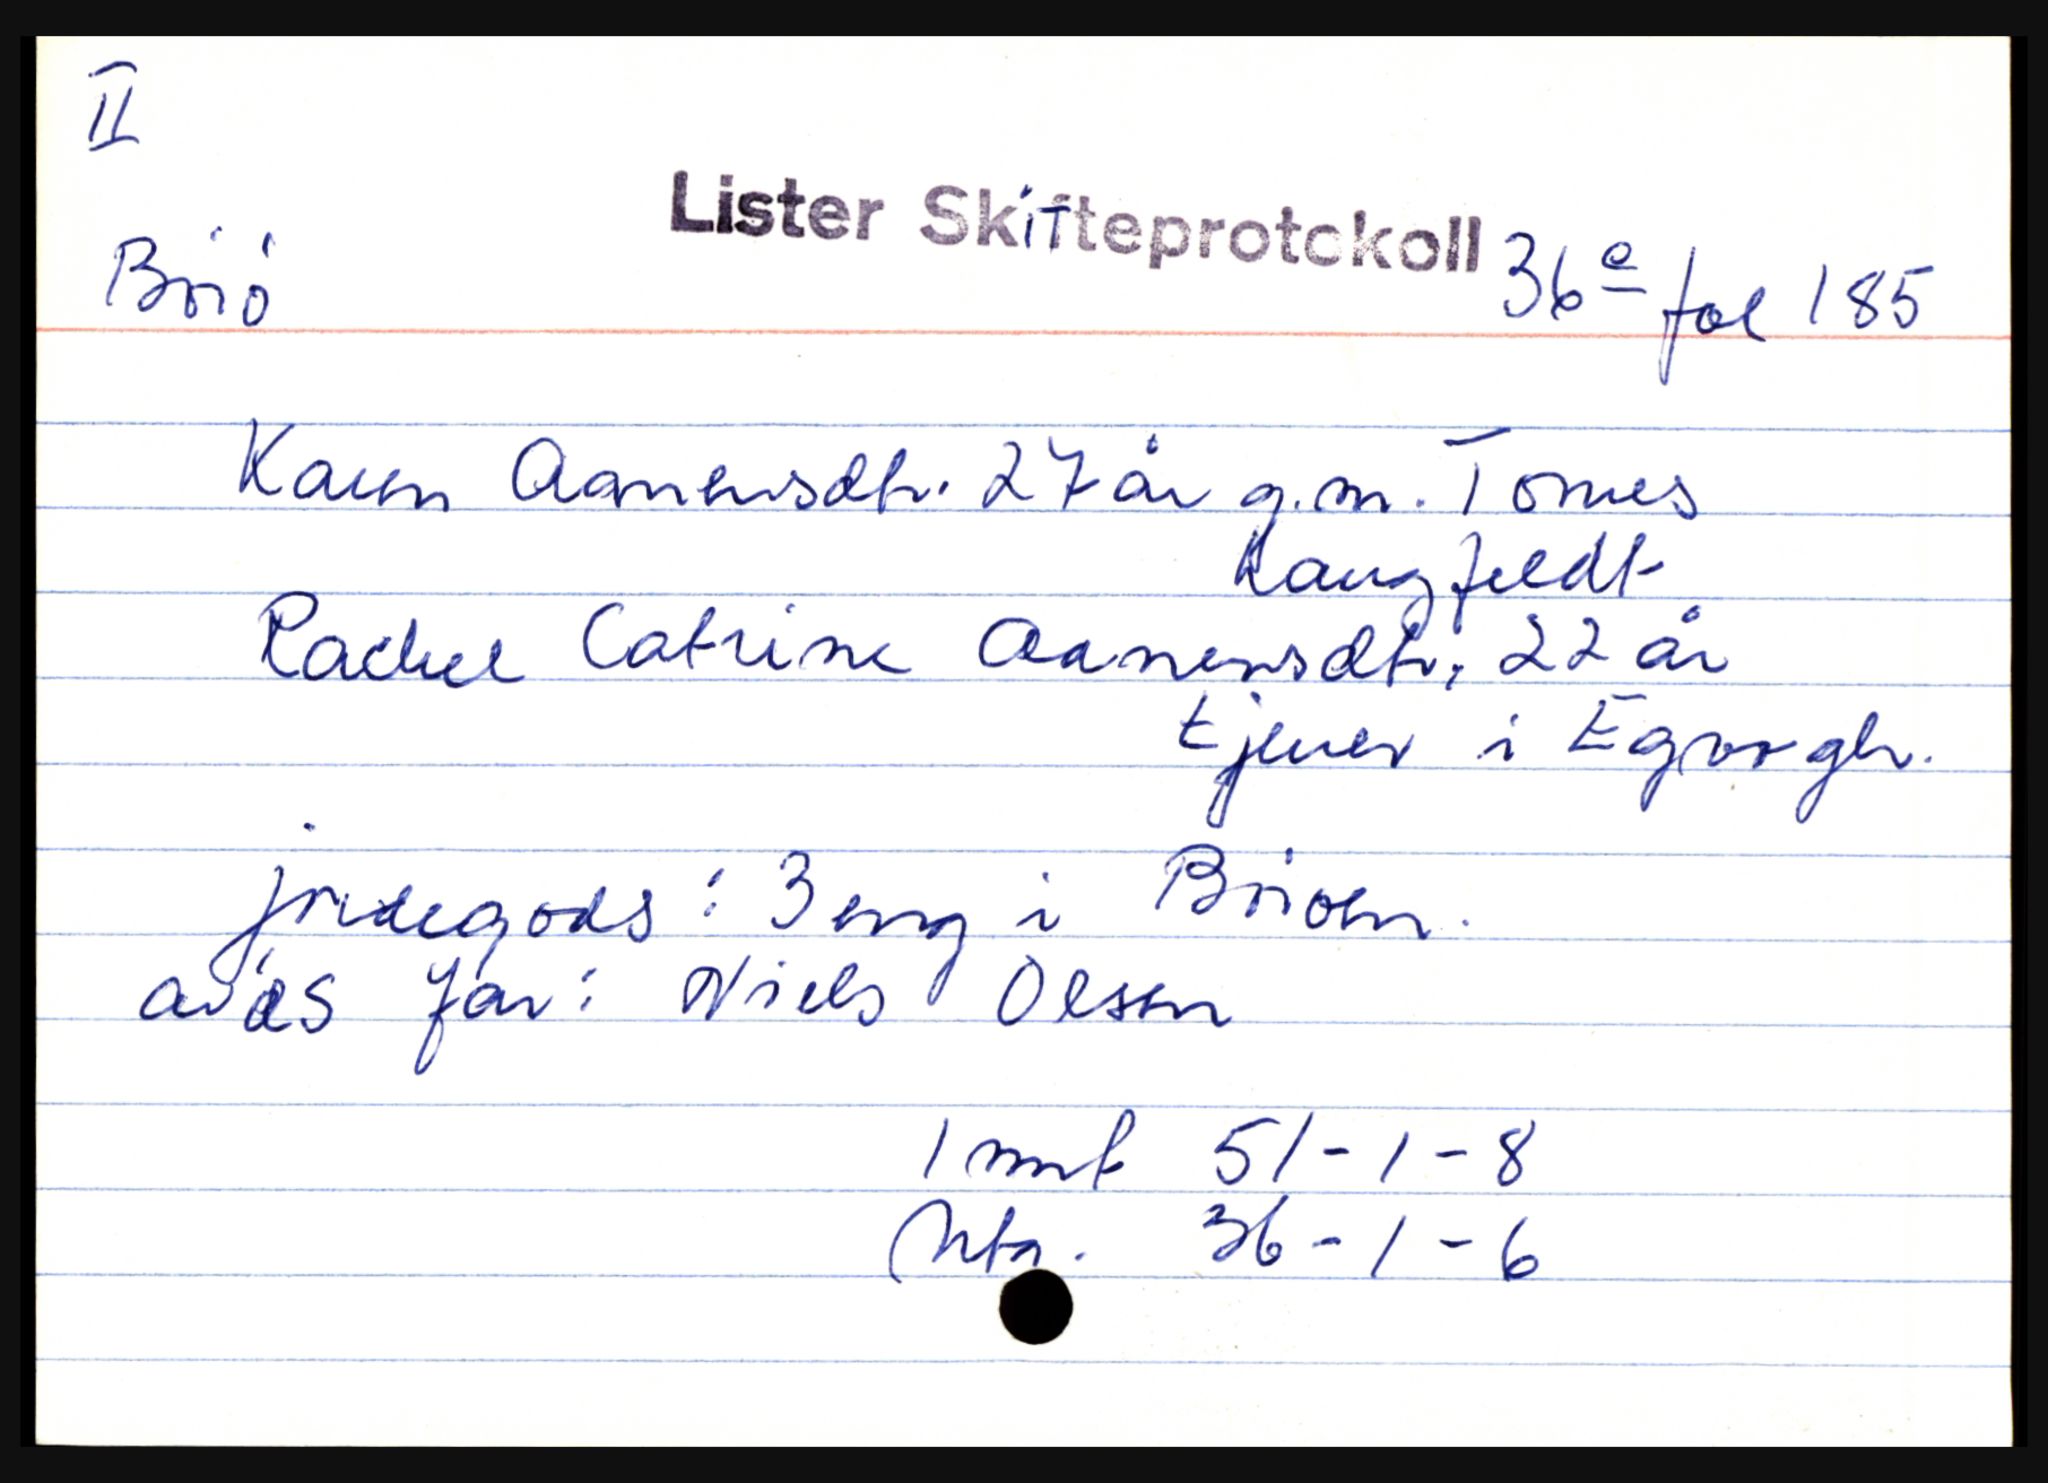 II
Lister Skifteprotokoll 36e fol 185
Briö
Karen Aanensdtr. 27 år g.m. Tomes
Langfeldt
Rachel Catrine Aanensdtr, 22 år
tjener i Egvågh.
jordegods: 3 eng i Briöen.
avdes far: Niels Olsen
1 mrk 51-1-8
Nto. 36-1-6